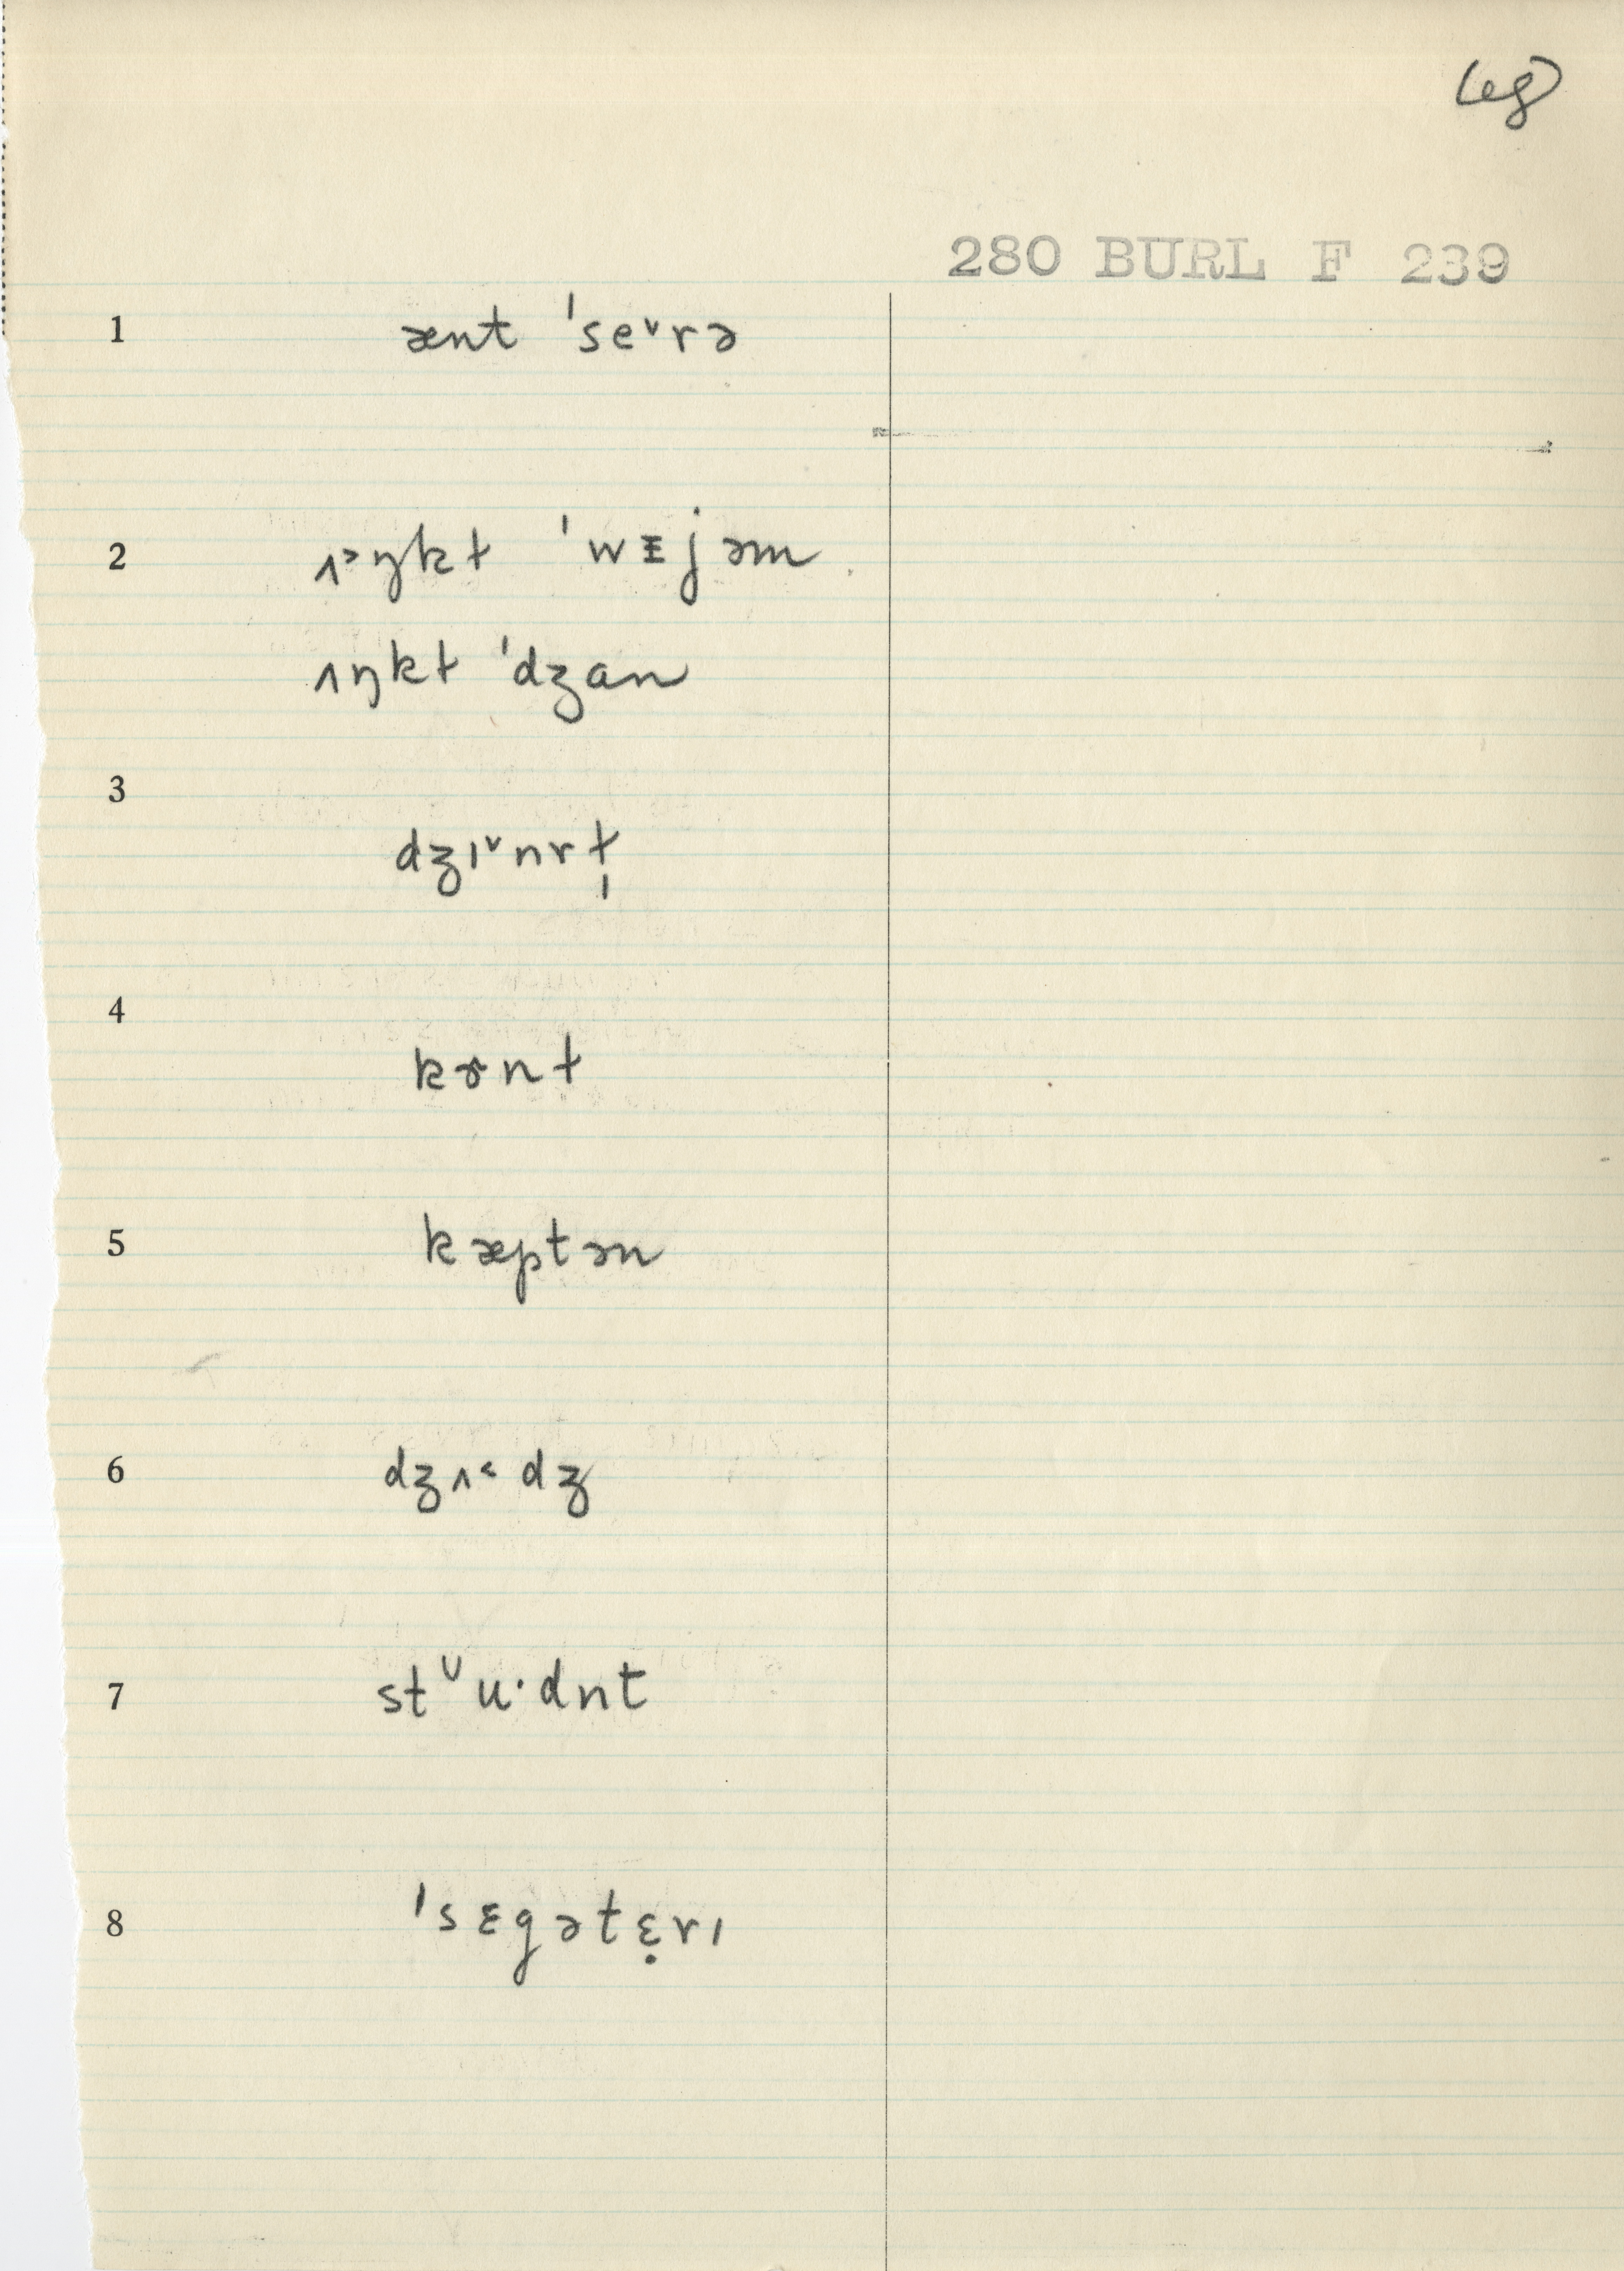 280 BURL F 239
1 ænt ˈseᵛrə
2 ʌ˃ŋkɫ ˈwɪjəm
ʌŋkɫ ˈdʒɑn
3 dʒɪᵛnrɫ̩
4 kɚnɫ
5 kæptən
6 dʒʌ˂dʒ
7 stᵛu·dnt
8 ˈsɛgətɛ̣rɪ